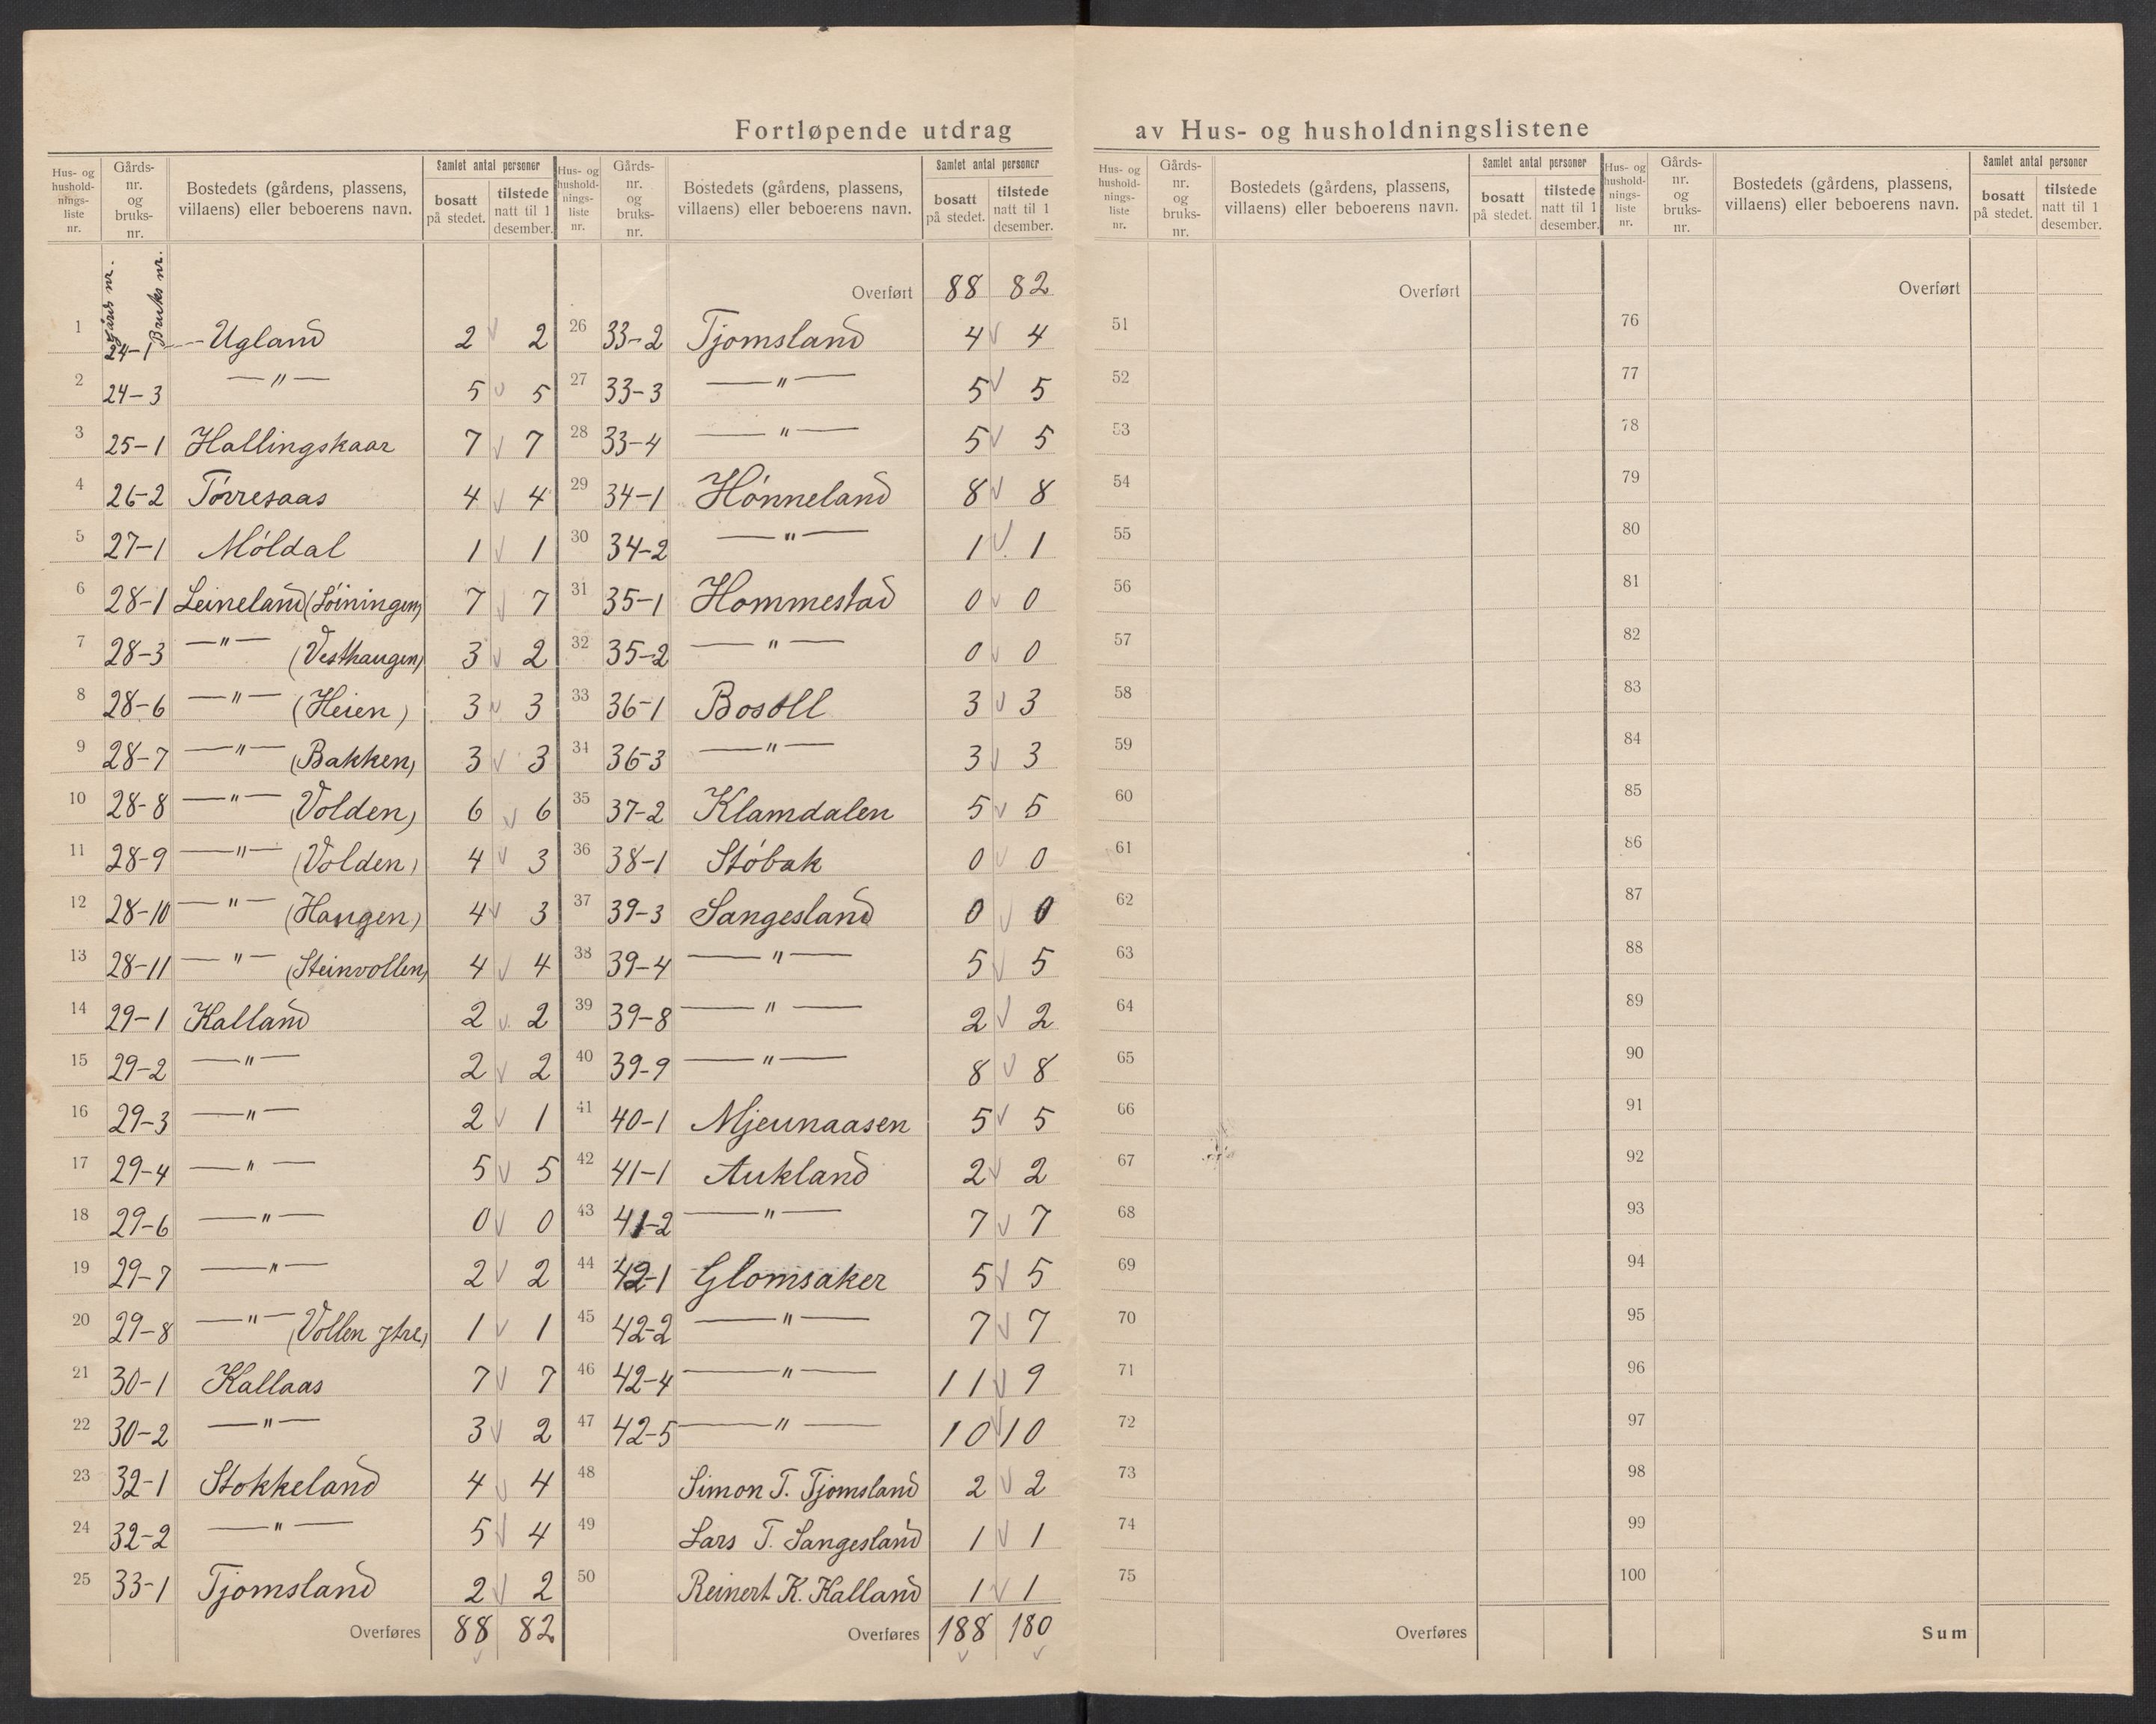 Fortløpende utdrag av Hus- og husholdningslistene
Hus- og husholdnings-liste nr. | Gårds-nr. og bruks-nr. | Bostedets (gårdens, plassens, villaens) eller beboerens navn. | Samlet antal personer | bosatt på stedet. | tilstede natt til 1 desember.
Hus- og husholdnings-liste nr. | Gårds-nr. og bruks-nr. | Bostedets (gårdens, plassens, villaens) eller beboerens navn. | Samlet antal personer | bosatt på stedet. | tilstede natt til 1 desember.
Gårds nr. Bruks nr.
1 24-1 Ugland 2 2
2 24-3 —"— 5 5
3 25-1 Hallingskaar 7 7
4 26-2 Tørresaas 4 4
5 27-1 Møldal 1 1
6 28-1 Leineland (Løiningen) 7 7
7 28-3 —"— (Vesthaugen) 3 2
8 28-6 —"— (Heien) 3 3
9 28-7 —"— (Bakken) 3 3
10 28-8 —"— (Volden) 6 6
11 28-9 —"— (Volden) 4 3
12 28-10 —"— (Haugen) 4 3
13 28-11 —"— (Steinvollen) 4 4
14 29-1 Kalland 2 2
15 29-2 —"— 2 2
16 29-3 —"— 2 1
17 29-4 —"— 5 5
18 29-6 —"— 0 0
19 29-7 —"— 2 2
20 29-8 —"— (Vollen ytre) 1 1
21 30-1 Kallaas 7 7
22 30-2 —"— 3 2
23 32-1 Stokkeland 4 4
24 32-2 —"— 5 4
25 33-1 Tjomsland 2 2
Overføres 88 82
Overført 88 82
26 33-2 Tjomsland 4 4
27 33-3 —"— 5 5
28 33-4 —"— 5 5
29 34-1 Hønneland 8 8
30 34-2 —"— 1 1
31 35-1 Hommestad 0 0
32 35-2 —"— 0 0
33 36-1 Bosøll 3 3
34 36-3 —"— 3 3
35 37-2 Klamdalen 5 5
36 38-1 Støbak 0 0
37 39-3 Sangesland 0 0
38 39-4 —"— 5 5
39 39-8 —"— 2 2
40 39-9 —"— 8 8
41 40-1 Mjeunaasen 5 5
42 41-1 Aukland 2 2
43 41-2 —"— 7 7
44 42-1 Glomsaker 5 5
45 42-2 —"— 7 7
46 42-4 —"— 11 9
47 42-5 —"— 10 10
48 Simon T. Tjomsland 2 2
49 Lars T. Sangesland 1 1
50 Reinert K. Kalland 1 1
Overføres 188 180
Hus- og husholdnings-liste nr. | Gårds-nr. og bruks-nr. | Bostedets (gårdens, plassens, villaens) eller beboerens navn. | Samlet antal personer | bosatt på stedet. | tilstede natt til 1 desember.
Hus- og husholdnings-liste nr. | Gårds-nr. og bruks-nr. | Bostedets (gårdens, plassens, villaens) eller beboerens navn. | Samlet antal personer | bosatt på stedet. | tilstede natt til 1 desember.
Overført
51
52
53
54
55
56
57
58
59
60
61
62
63
64
65
66
67
68
69
70
71
72
73
74
75
Overføres
Overført
76
77
78
79
80
81
82
83
84
85
86
87
88
89
90
91
92
93
94
95
96
97
98
99
100
Sum